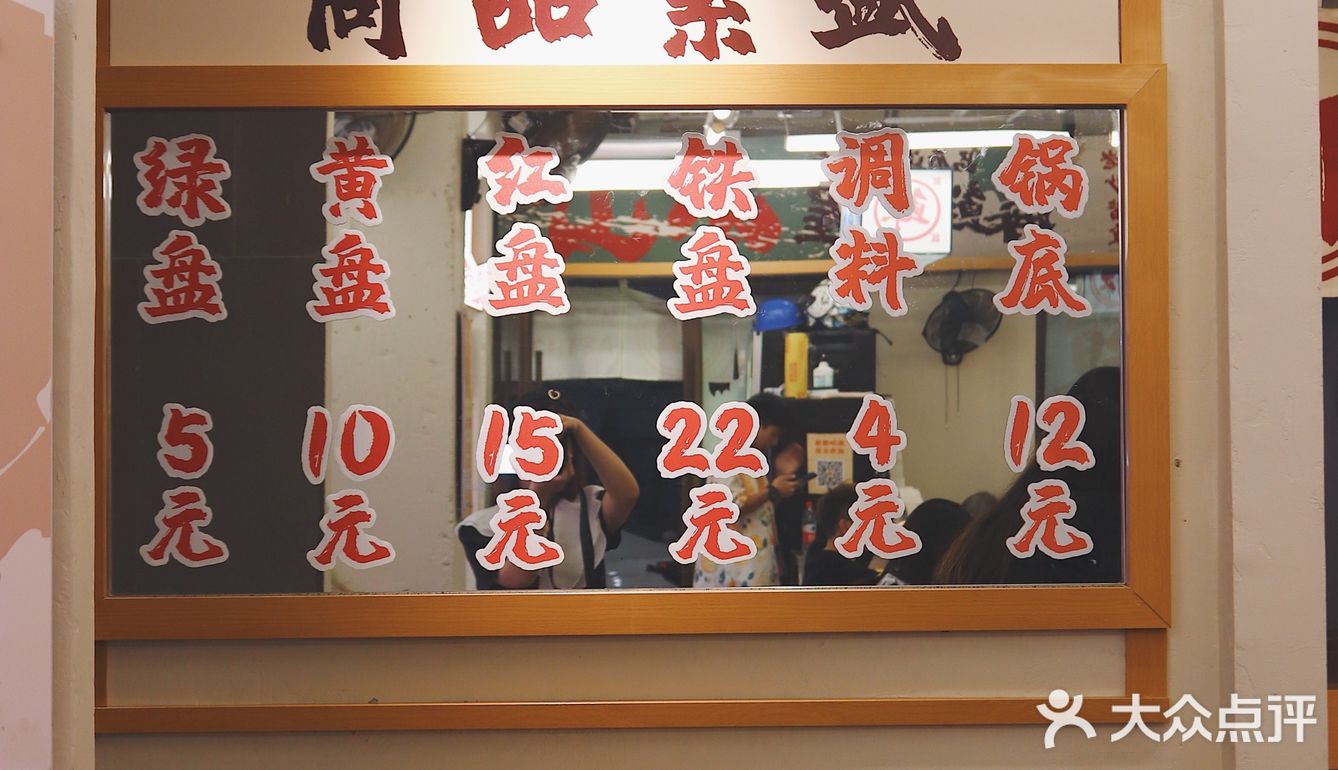 绿盘 5元
黄盘 10元
红盘 15元
铁盘 22元
调料 4元
锅底 12元
大众点评